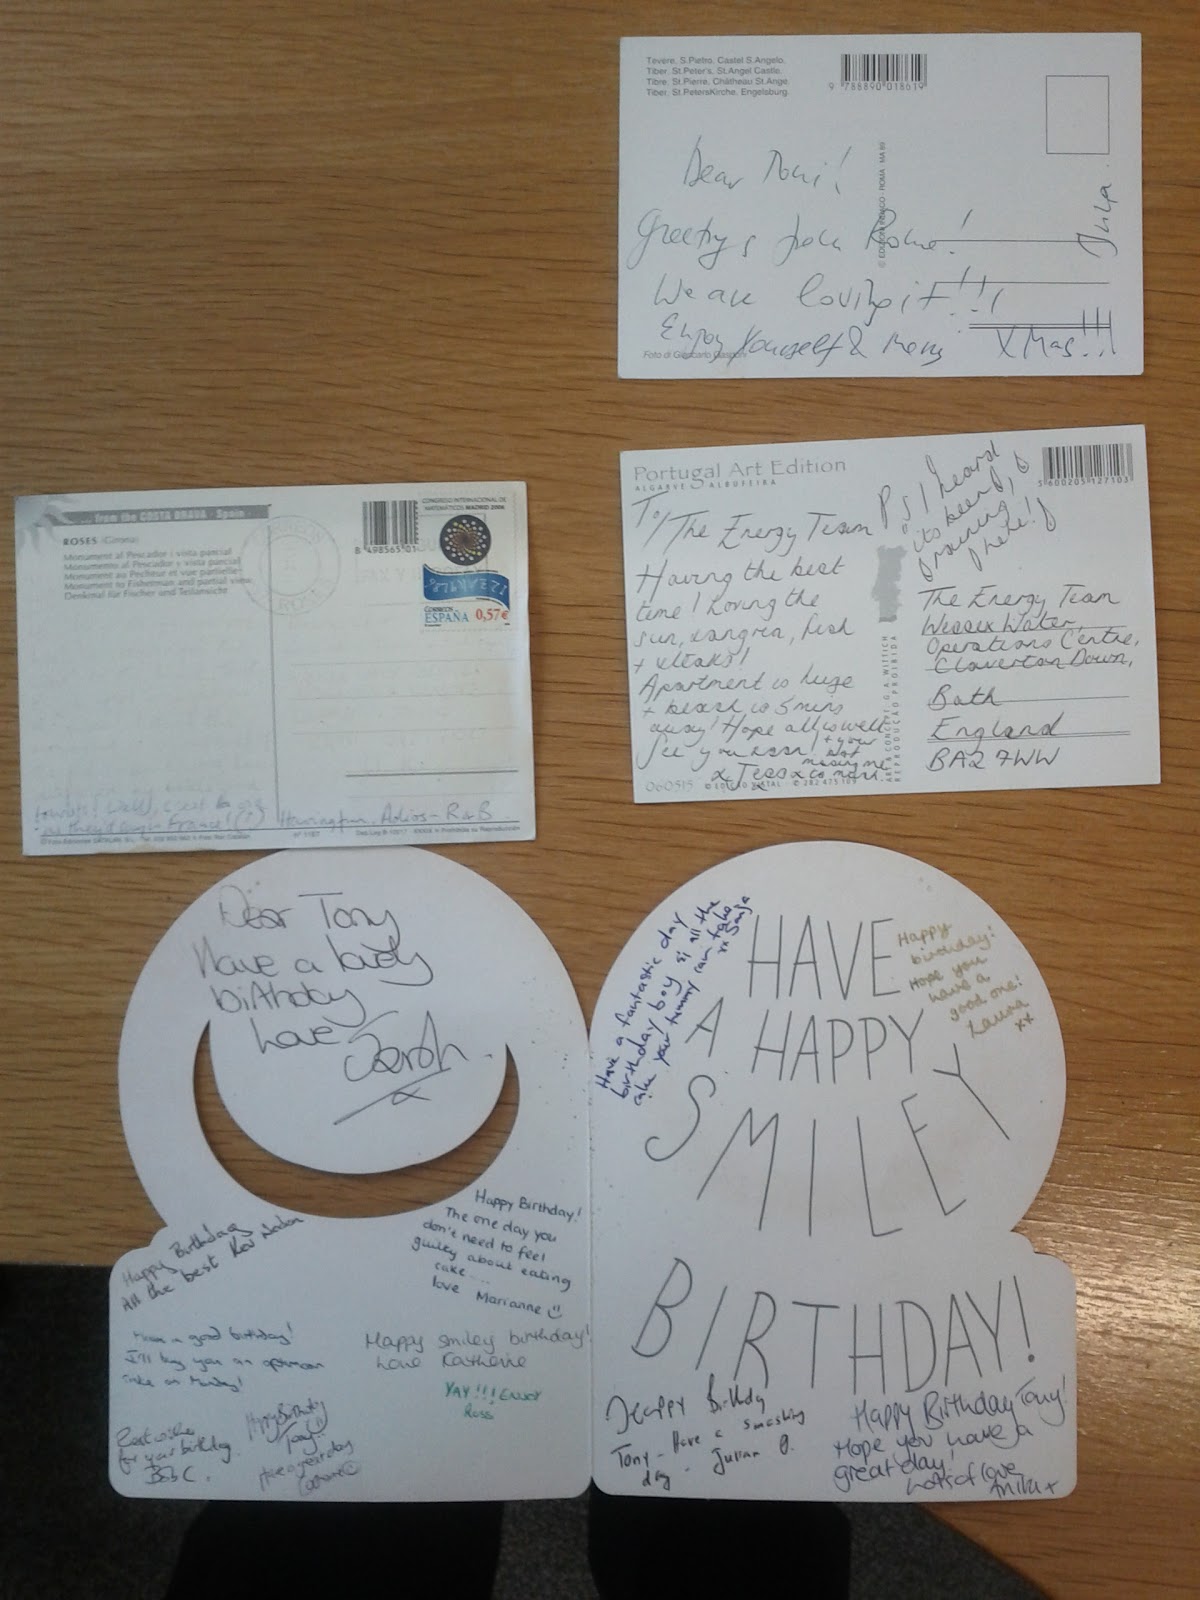 Tevere, S.Pietro, Castel S.Angelo.
Tiber, St.Peter's, St.Angel Castle.
Tibre, St.Pierre, Châtheau St.Ange.
Tiber, St.PetersKirche, Engelsburg.
9 788890 018619
Dear Toni!
Greetings from Rome!
We are loving it!!!
Enjoy Yourself & Merry XMas!!!
Foto di
Portugal Art Edition
ALGARVE ALBUFEIRA
5 600205 127103
To/ The Energy Team
Having the best
time! Loving the
sun, sangria, fish
+ steaks!
Apartment is huge
+ beach is 5 mins
away! Hope all is well
+ your not
missing me
See you soon!
x Tess x
P.S. I heard
its been
raining
here!
The Energy Team
Wessex Water,
Operations Centre,
Claverton Down,
Bath
England
BA2 7WW
060515
... from the COSTA BRAVA - Spain -
ROSES (Girona)
Monument al Pescador i vista parcial
Monumento al Pescador y vista parcial
Monument au Pecheur et vue partielle
Monument to Fisherman and partial view
Denkmal für Fischer und Teilansicht
8 498565 01
CONGRESO INTERNACIONAL DE
MATEMÁTICOS MADRID 2006
CORREOS
ESPAÑA 0,57€
Adios - R & B
Dear Tony
Have a lovely
birthday
Love Sarah
x
Happy Birthday
All the best
Happy Birthday!
The one day you
don't need to feel
guilty about eating
cake...
love Marianne
Have a good birthday!
I'll buy you an
on Monday!
Happy smiley birthday!
Love Katherine
YAY!!! ENJOY
Ross
Best wishes
for your birthday
Bob C.
Happy Birthday
Tony!
Have a great day
Have a fantastic day
birthday boy & all the
cake your tummy can take
xx Sonja
HAVE
A HAPPY
SMILEY
BIRTHDAY!
Happy
birthday!
Hope you
have a
good one!
Laura
xx
Happy Birthday
Tony - Have a smashing
day. Julian
Happy Birthday Tony!
Hope you have a
great day!
Lots of love,
Anita x